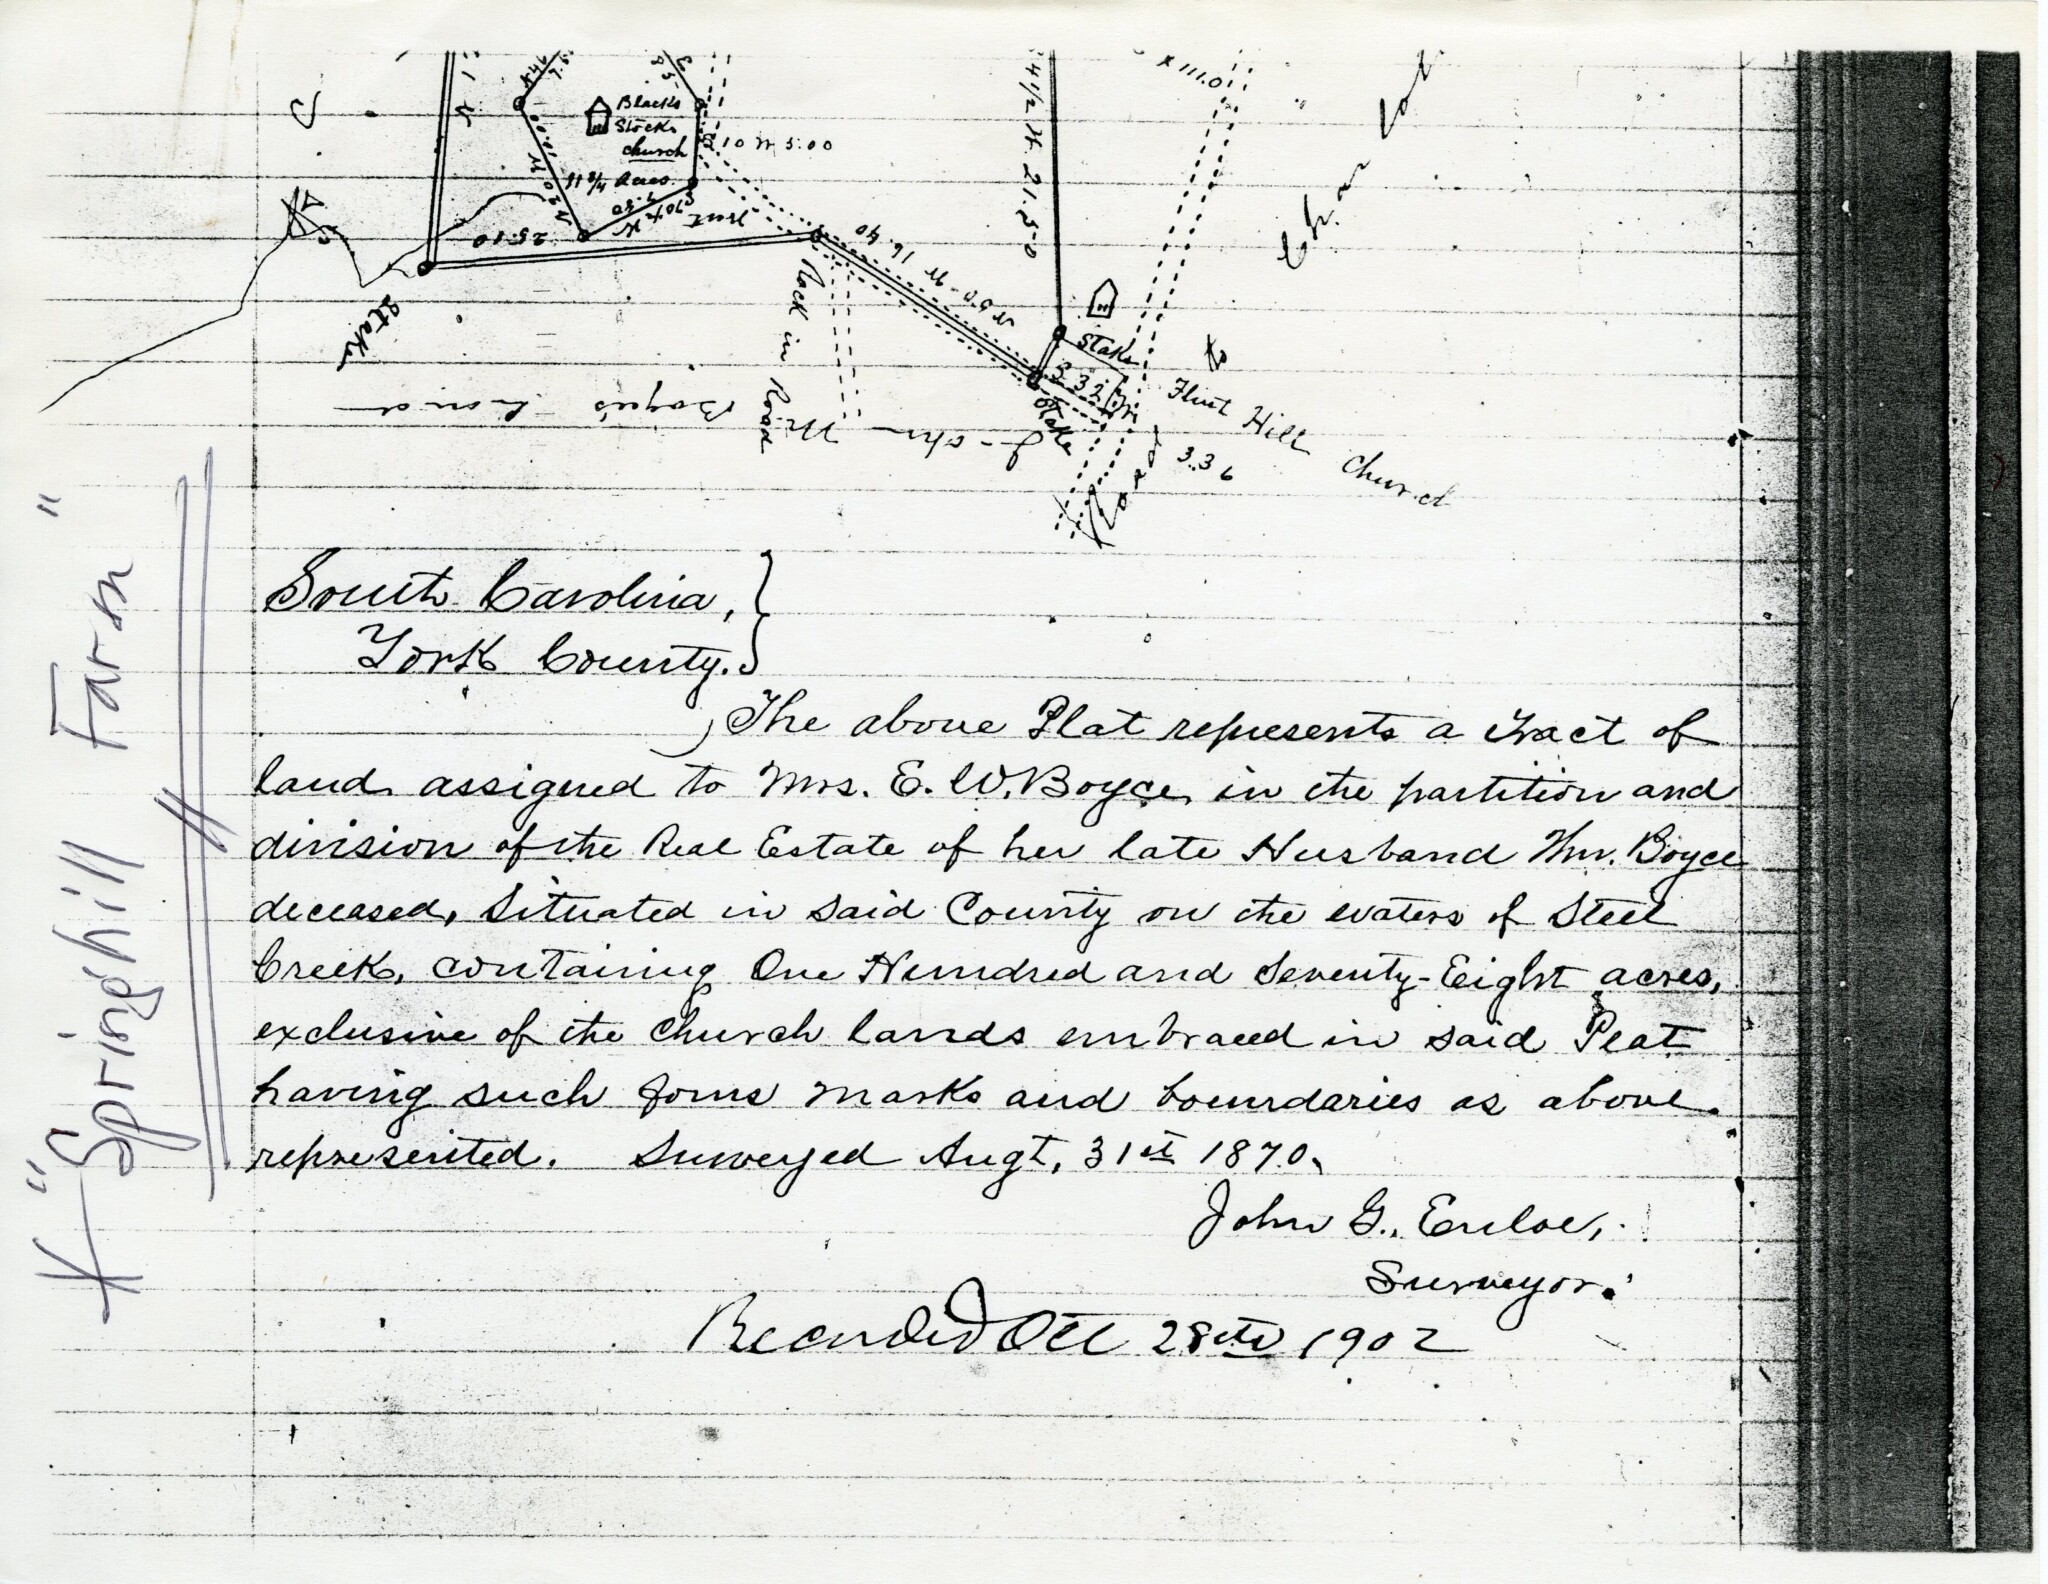 Blacks
Stocks
church
11 3/4 Acres
S 10 W 5.00
N 20 W 10.00
7.50
25.10
N 50 W 16.40
4 1/2 W 21.50
X 111.0
Stake
Rock in Road
John M
Boyce's Land
Stake
S. 32
Stake
to
Flint Hill Church
3.36
Road
South Carolina,
York County.
The above Plat represents a tract of
land assigned to Mrs. E. W. Boyce, in the partition and
division of the Real Estate of her late Husband Wm. Boyce
deceased, Situated in said County on the waters of Steel
Creek, containing One Hundred and Seventy-Eight acres,
exclusive of the Church lands embraced in said Plat
having such forms marks and boundaries as above
represented. Surveyed Augt, 31st 1870,
John G. Enloe,
Surveyor.
Recorded Oct 28th 1902
"Springhill Farm"